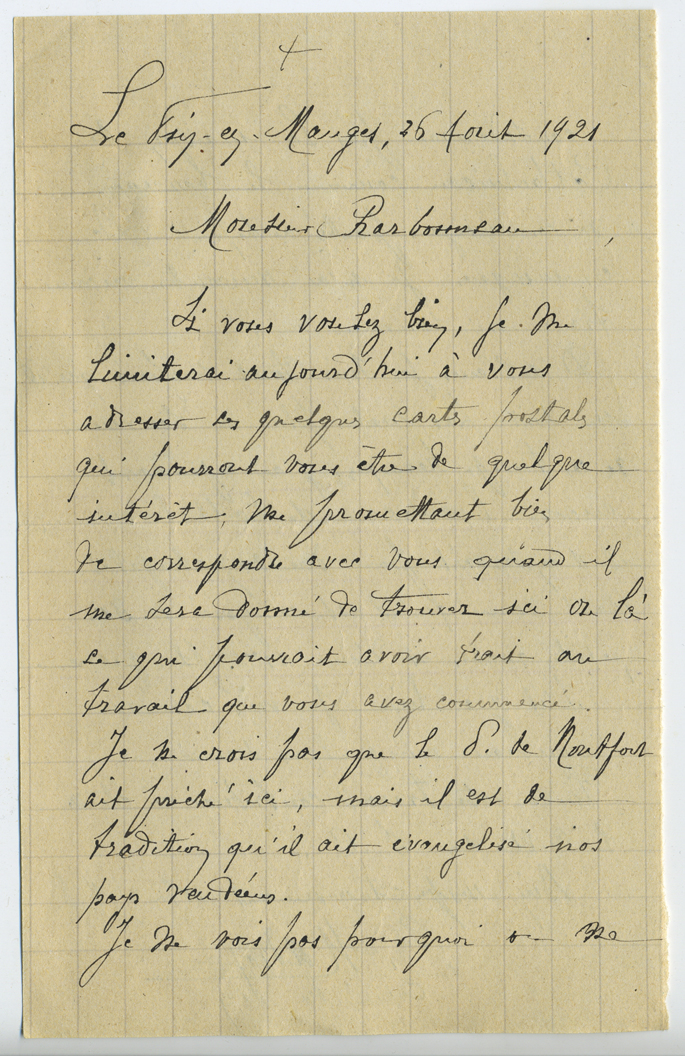 +
Le Fuiy-en-Mauges, 26 Aout 1921
Monsieur Charbonneau,
Si vous voulez bien, je me
limiterai aujourd'hui à vous
adresser ces quelques cartes postales
qui pourront vous être de quelque
intérêt, me promettant bien
de correspondre avec vous quand il
me sera donné de trouver ici ou là
ce qui pourrait avoir trait au
travail que vous avez commencé.
Je ne crois pas que le P. de Montfort
ait prêché ici, mais il est de
tradition qu'il ait évangelisé nos
pays vendéens.
Je ne vois pas pourquoi on ne